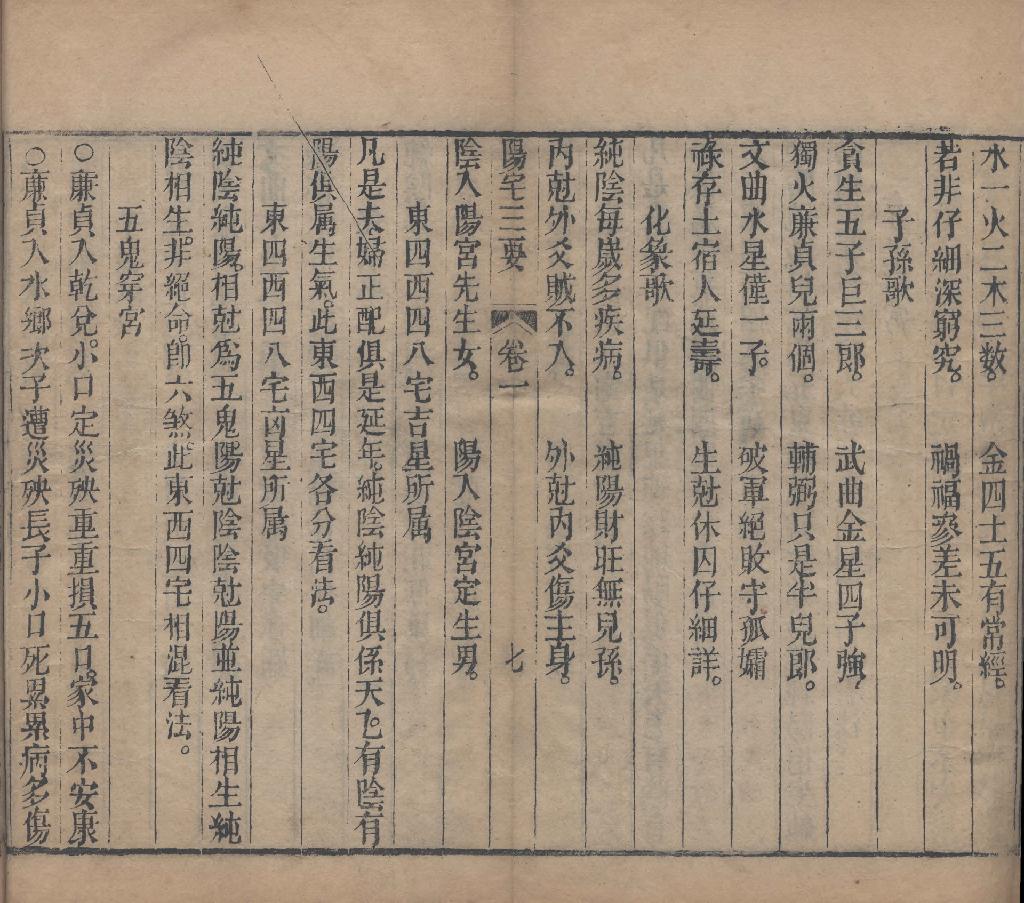 水一火二木三数。 金四土五有常經。
若非仔細深窮究。 禍福參差未可明。
子孫歌
貪生五子巨三郎。 武曲金星四子強
獨火廉貞兒兩個。 輔弼只是半兒郎。
文曲水星僅一子。 破軍絕敗守孤孀
祿存土宿人延壽。 生尅休囚仔細詳。
化象歌
純陰每歲多疾病。 純陽財旺無兒孫。
內尅外爻賊不入。 外尅內爻傷主身。
陽宅三要 卷一 七
陰入陽宮先生女。 陽入陰宮定生男。
東四西四八宅吉星所属
凡是夫婦正配俱是延年。純陰純陽俱係天乙。有陰有
陽俱属生氣。此東西四宅各分看法。
東四西四八宅凶星所属
純陰純陽。相尅爲五鬼。陽尅陰陰尅陽並純陽相生純
陰相生。非絕命。卽六煞。此東西四宅相混看法。
五鬼穿宮
○廉貞入乾兌。小口定災殃重重損五口。家中不安康
○廉貞入水鄉次子遭災殃長子小口死累累病多傷